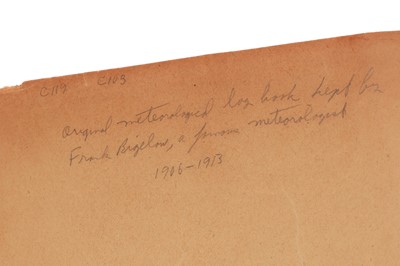 C112 C103
Original meteorological log book kept by
Frank Bigelow, a famous meteorologist
1906-1913